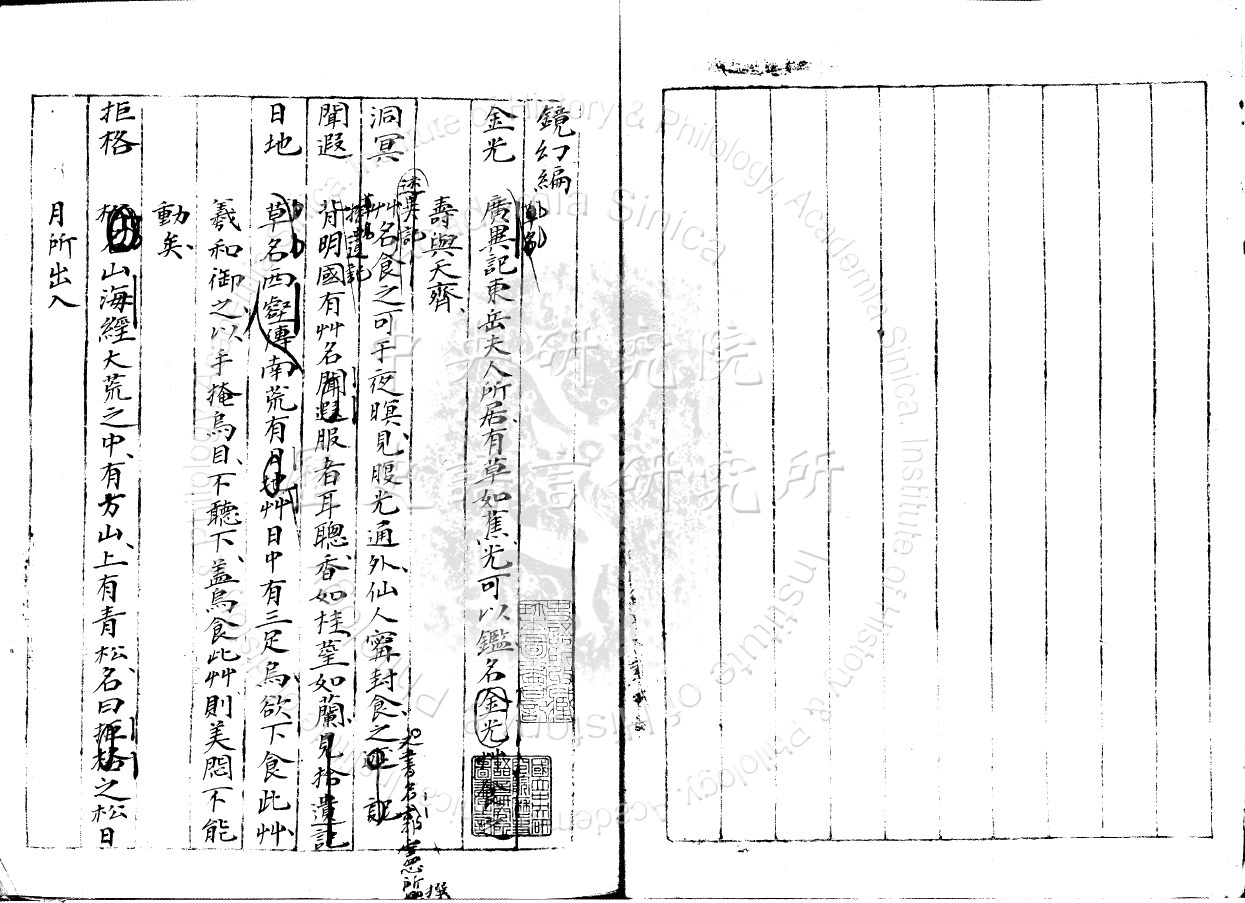 鏡幻編
金光 廣異記東岳夫人所居有草如蕉光可以鑑名金光草食之
壽與天齊
洞冥 述異記 艸名食之可于夜暝見腹光通外仙人甯封食之
凡書名都寫所撰
聞遐 拾遺記 背明國有艸名聞遐服者耳聰香如桂莖如蘭見拾遺記
日地 草名西 傳南荒有地日艸日中有三足烏欲下食此艸
羲和御之以手掩烏目不聽下蓋烏食此艸則美悶不能
動矣
拒格 松名山海經大荒之中有方山上有青松名曰拒格之松日
月所出入
中央研究院
歷史語言研究所
Institute of History & Philology, Academia Sinica